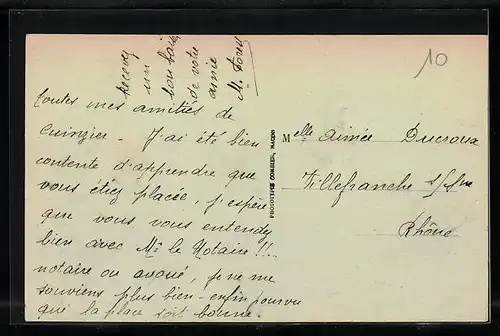 toutes mes amitiés de
Cuinzier - J'ai été bien
contente d'apprendre que
vous étiez placée, j'espère
que vous vous entendez
bien avec Mr le Notaire !!...
notaire ou avoué, je ne me
souviens plus bien - enfin pourvu
que la place soit bonne.
Recevez
un
bon baiser
de votre
amie
M. Forest
PHOTOTYPIE COMBIER, MACON
Melle Aimée Ducroux
Villefranche s/Sne
Rhône
10